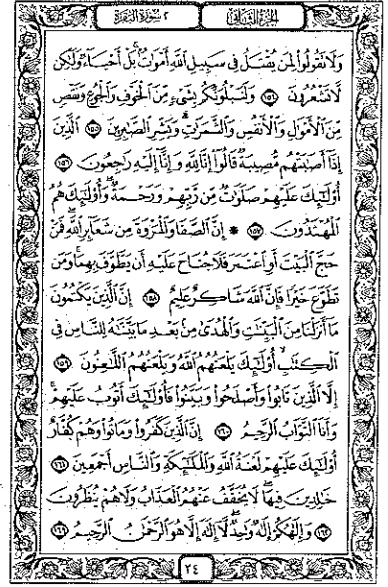 الجزء الثاني ٢ سورة البقرة
وَلَا تَقُولُوا۟ لِمَن يُقْتَلُ فِى سَبِيلِ ٱللَّهِ أَمْوَٰتٌۢ ۚ بَلْ أَحْيَآءٌ وَلَٰكِن
لَّا تَشْعُرُونَ ١٥٤ وَلَنَبْلُوَنَّكُم بِشَىْءٍ مِّنَ ٱلْخَوْفِ وَٱلْجُوعِ وَنَقْصٍ
مِّنَ ٱلْأَمْوَٰلِ وَٱلْأَنفُسِ وَٱلثَّمَرَٰتِ ۗ وَبَشِّرِ ٱلصَّٰبِرِينَ ١٥٥ ٱلَّذِينَ
إِذَآ أَصَٰبَتْهُم مُّصِيبَةٌ قَالُوٓا۟ إِنَّا لِلَّهِ وَإِنَّآ إِلَيْهِ رَٰجِعُونَ ١٥٦
أُو۟لَٰٓئِكَ عَلَيْهِمْ صَلَوَٰتٌ مِّن رَّبِّهِمْ وَرَحْمَةٌ ۖ وَأُو۟لَٰٓئِكَ هُمُ
ٱلْمُهْتَدُونَ ١٥٧ ۞ إِنَّ ٱلصَّفَا وَٱلْمَرْوَةَ مِن شَعَآئِرِ ٱللَّهِ ۖ فَمَنْ
حَجَّ ٱلْبَيْتَ أَوِ ٱعْتَمَرَ فَلَا جُنَاحَ عَلَيْهِ أَن يَطَّوَّفَ بِهِمَا ۚ وَمَن
تَطَوَّعَ خَيْرًا فَإِنَّ ٱللَّهَ شَاكِرٌ عَلِيمٌ ١٥٨ إِنَّ ٱلَّذِينَ يَكْتُمُونَ
مَآ أَنزَلْنَا مِنَ ٱلْبَيِّنَٰتِ وَٱلْهُدَىٰ مِنۢ بَعْدِ مَا بَيَّنَّٰهُ لِلنَّاسِ فِى
ٱلْكِتَٰبِ ۙ أُو۟لَٰٓئِكَ يَلْعَنُهُمُ ٱللَّهُ وَيَلْعَنُهُمُ ٱللَّٰعِنُونَ ١٥٩
إِلَّا ٱلَّذِينَ تَابُوا۟ وَأَصْلَحُوا۟ وَبَيَّنُوا۟ فَأُو۟لَٰٓئِكَ أَتُوبُ عَلَيْهِمْ ۚ
وَأَنَا ٱلتَّوَّابُ ٱلرَّحِيمُ ١٦٠ إِنَّ ٱلَّذِينَ كَفَرُوا۟ وَمَاتُوا۟ وَهُمْ كُفَّارٌ
أُو۟لَٰٓئِكَ عَلَيْهِمْ لَعْنَةُ ٱللَّهِ وَٱلْمَلَٰٓئِكَةِ وَٱلنَّاسِ أَجْمَعِينَ ١٦١
خَٰلِدِينَ فِيهَا ۖ لَا يُخَفَّفُ عَنْهُمُ ٱلْعَذَابُ وَلَا هُمْ يُنظَرُونَ
١٦٢ وَإِلَٰهُكُمْ إِلَٰهٌ وَٰحِدٌ ۖ لَّآ إِلَٰهَ إِلَّا هُوَ ٱلرَّحْمَٰنُ ٱلرَّحِيمُ ١٦٣
٢٤